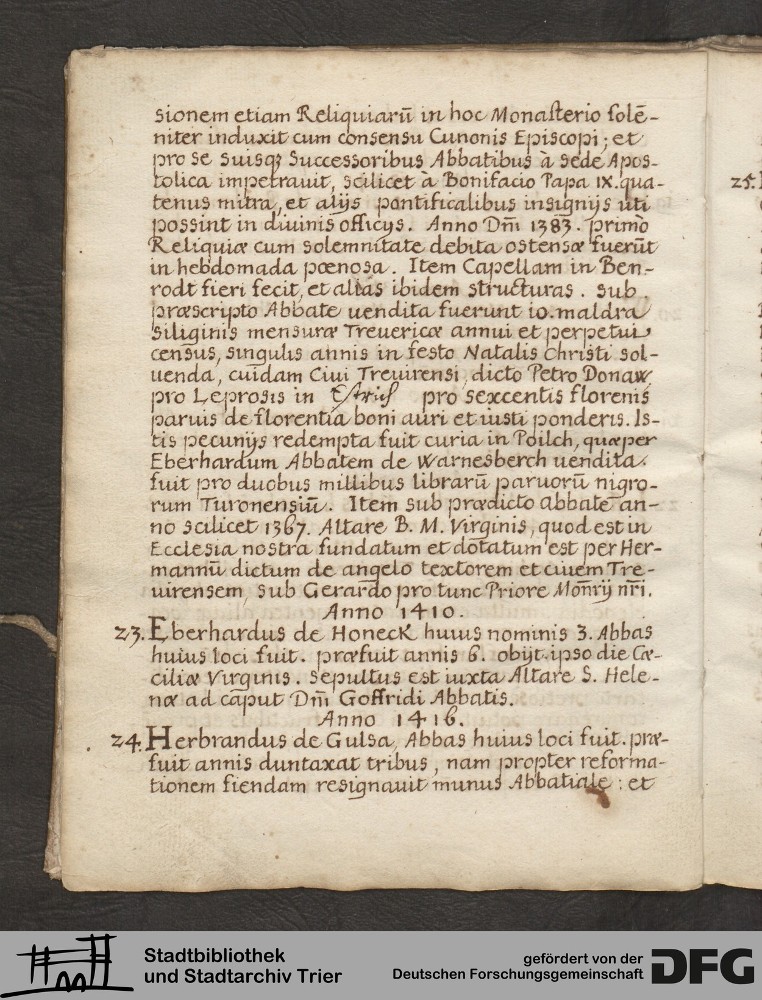 sionem etiam Reliquiarū in hoc Monasterio solē-
niter induxit cum consensu Cunonis Episcopi; et
pro se suisq; Successoribus Abbatibus à sede Apos-
tolica impetrauit, scilicet à Bonifacio Papa IX. qua-
tenus mitra, et alijs pontificalibus insignijs uti
possint in diuinis officijs. Anno Dn̄i 1383. primò
Reliquiæ cum solemnitate debita ostensæ fuerūt
in hebdomada pœnosa. Item Capellam in Ben-
rodt fieri fecit, et alias ibidem structuras. Sub
præscripto Abbate uendita fuerunt 10. maldra
siliginis mensuræ Treuericæ annui et perpetui
census, singulis annis in festo Natalis Christi sol-
uenda, cuidam Ciui Treuirensi, dicto Petro Donaw
pro Leprosis in Estrich pro sexcentis florenis
paruis de florentia boni auri et iusti ponderis. Is-
tis pecunijs redempta fuit curia in Poilch, quæ per
Eberhardum Abbatem de Warnesberch uendita
fuit pro duobus millibus librarū paruorū nigro-
rum Turonensiū. Item sub prædicto Abbate an-
no scilicet 1367. Altare B. M. Virginis, quod est in
Ecclesia nostra fundatum et dotatum est per Her-
mannū dictum de angelo textorem et ciuem Tre-
uirensem, sub Gerardo pro tunc Priore Mon̄rij nr̄i.
Anno 1410.
23. Eberhardus de Honeck huius nominis 3. Abbas
huius loci fuit. præfuit annis 6. obijt ipso die Cæ-
ciliæ Virginis. Sepultus est iuxta Altare S. Hele-
næ ad caput Dn̄i Goffridi Abbatis.
Anno 1416.
24. Herbrandus de Gulsa, Abbas huius loci fuit. præ-
fuit annis duntaxat tribus, nam propter reforma-
tionem fiendam resignauit munus Abbatiale: et
25.
Stadtbibliothek
und Stadtarchiv Trier
gefördert von der
Deutschen Forschungsgemeinschaft
DFG